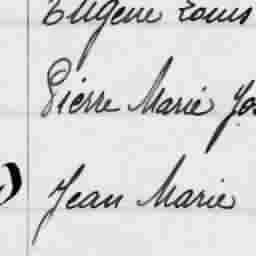 Eugène Louis
Pierre Marie Jos
Jean Marie